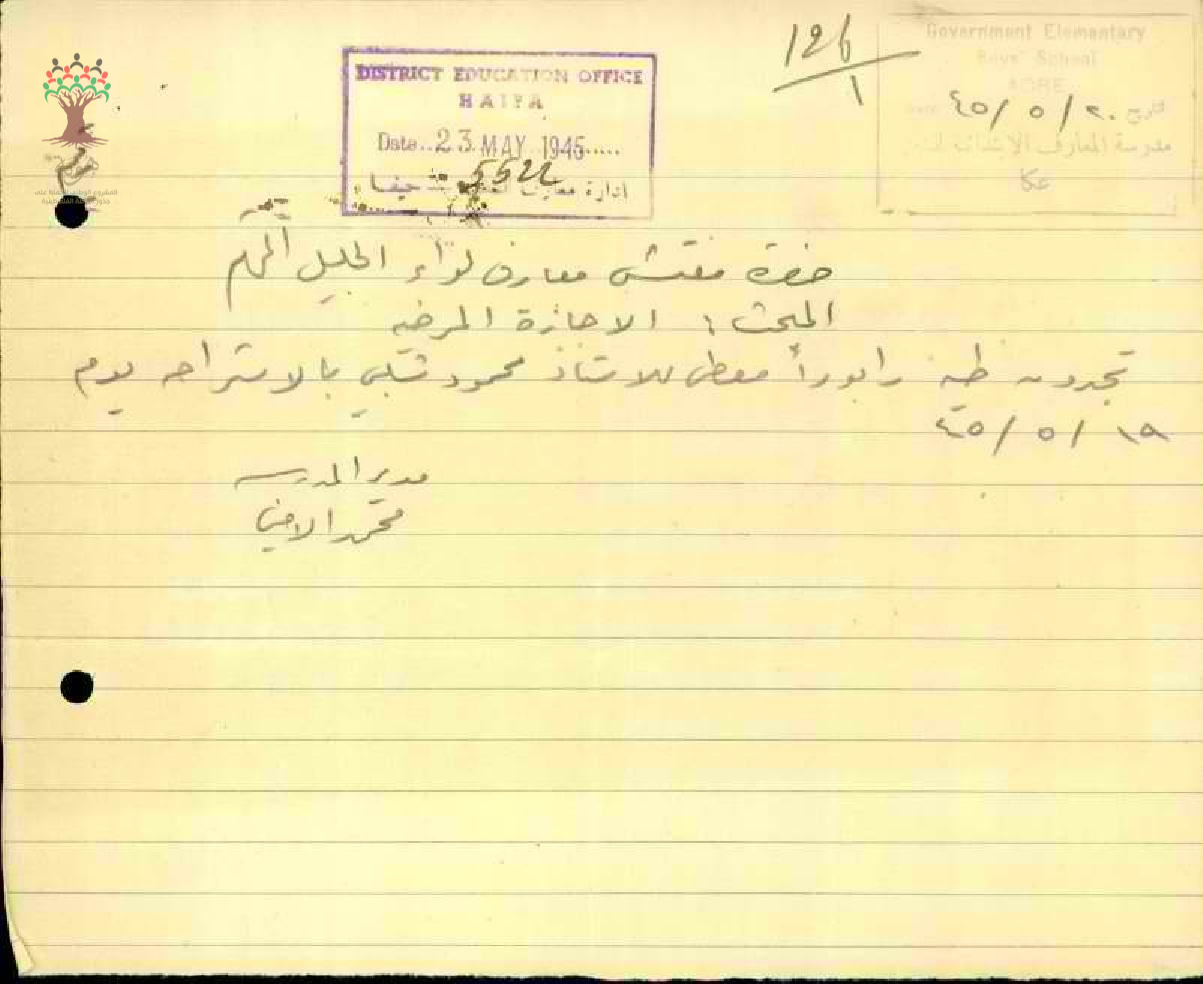 126
1
Government Elementary
Boys' School
ACRE
تاريخ ٢٠ / ٥ / ٤٥
مدرسة المعارف الابتدائية
عكا
DISTRICT EDUCATION OFFICE
HAIFA
Date 23 MAY 1945
5522
ادارة معارف حيفا
حضرة مفتش معارف لواء الجليل المحترم
المبحث : الاجازة المرضيه
تجدون طيه رابوراً معطى للاستاذ محمود شبلي بالاستراحه يوم
١٩ / ٥ / ٤٥
مدير المدرسه
محمد